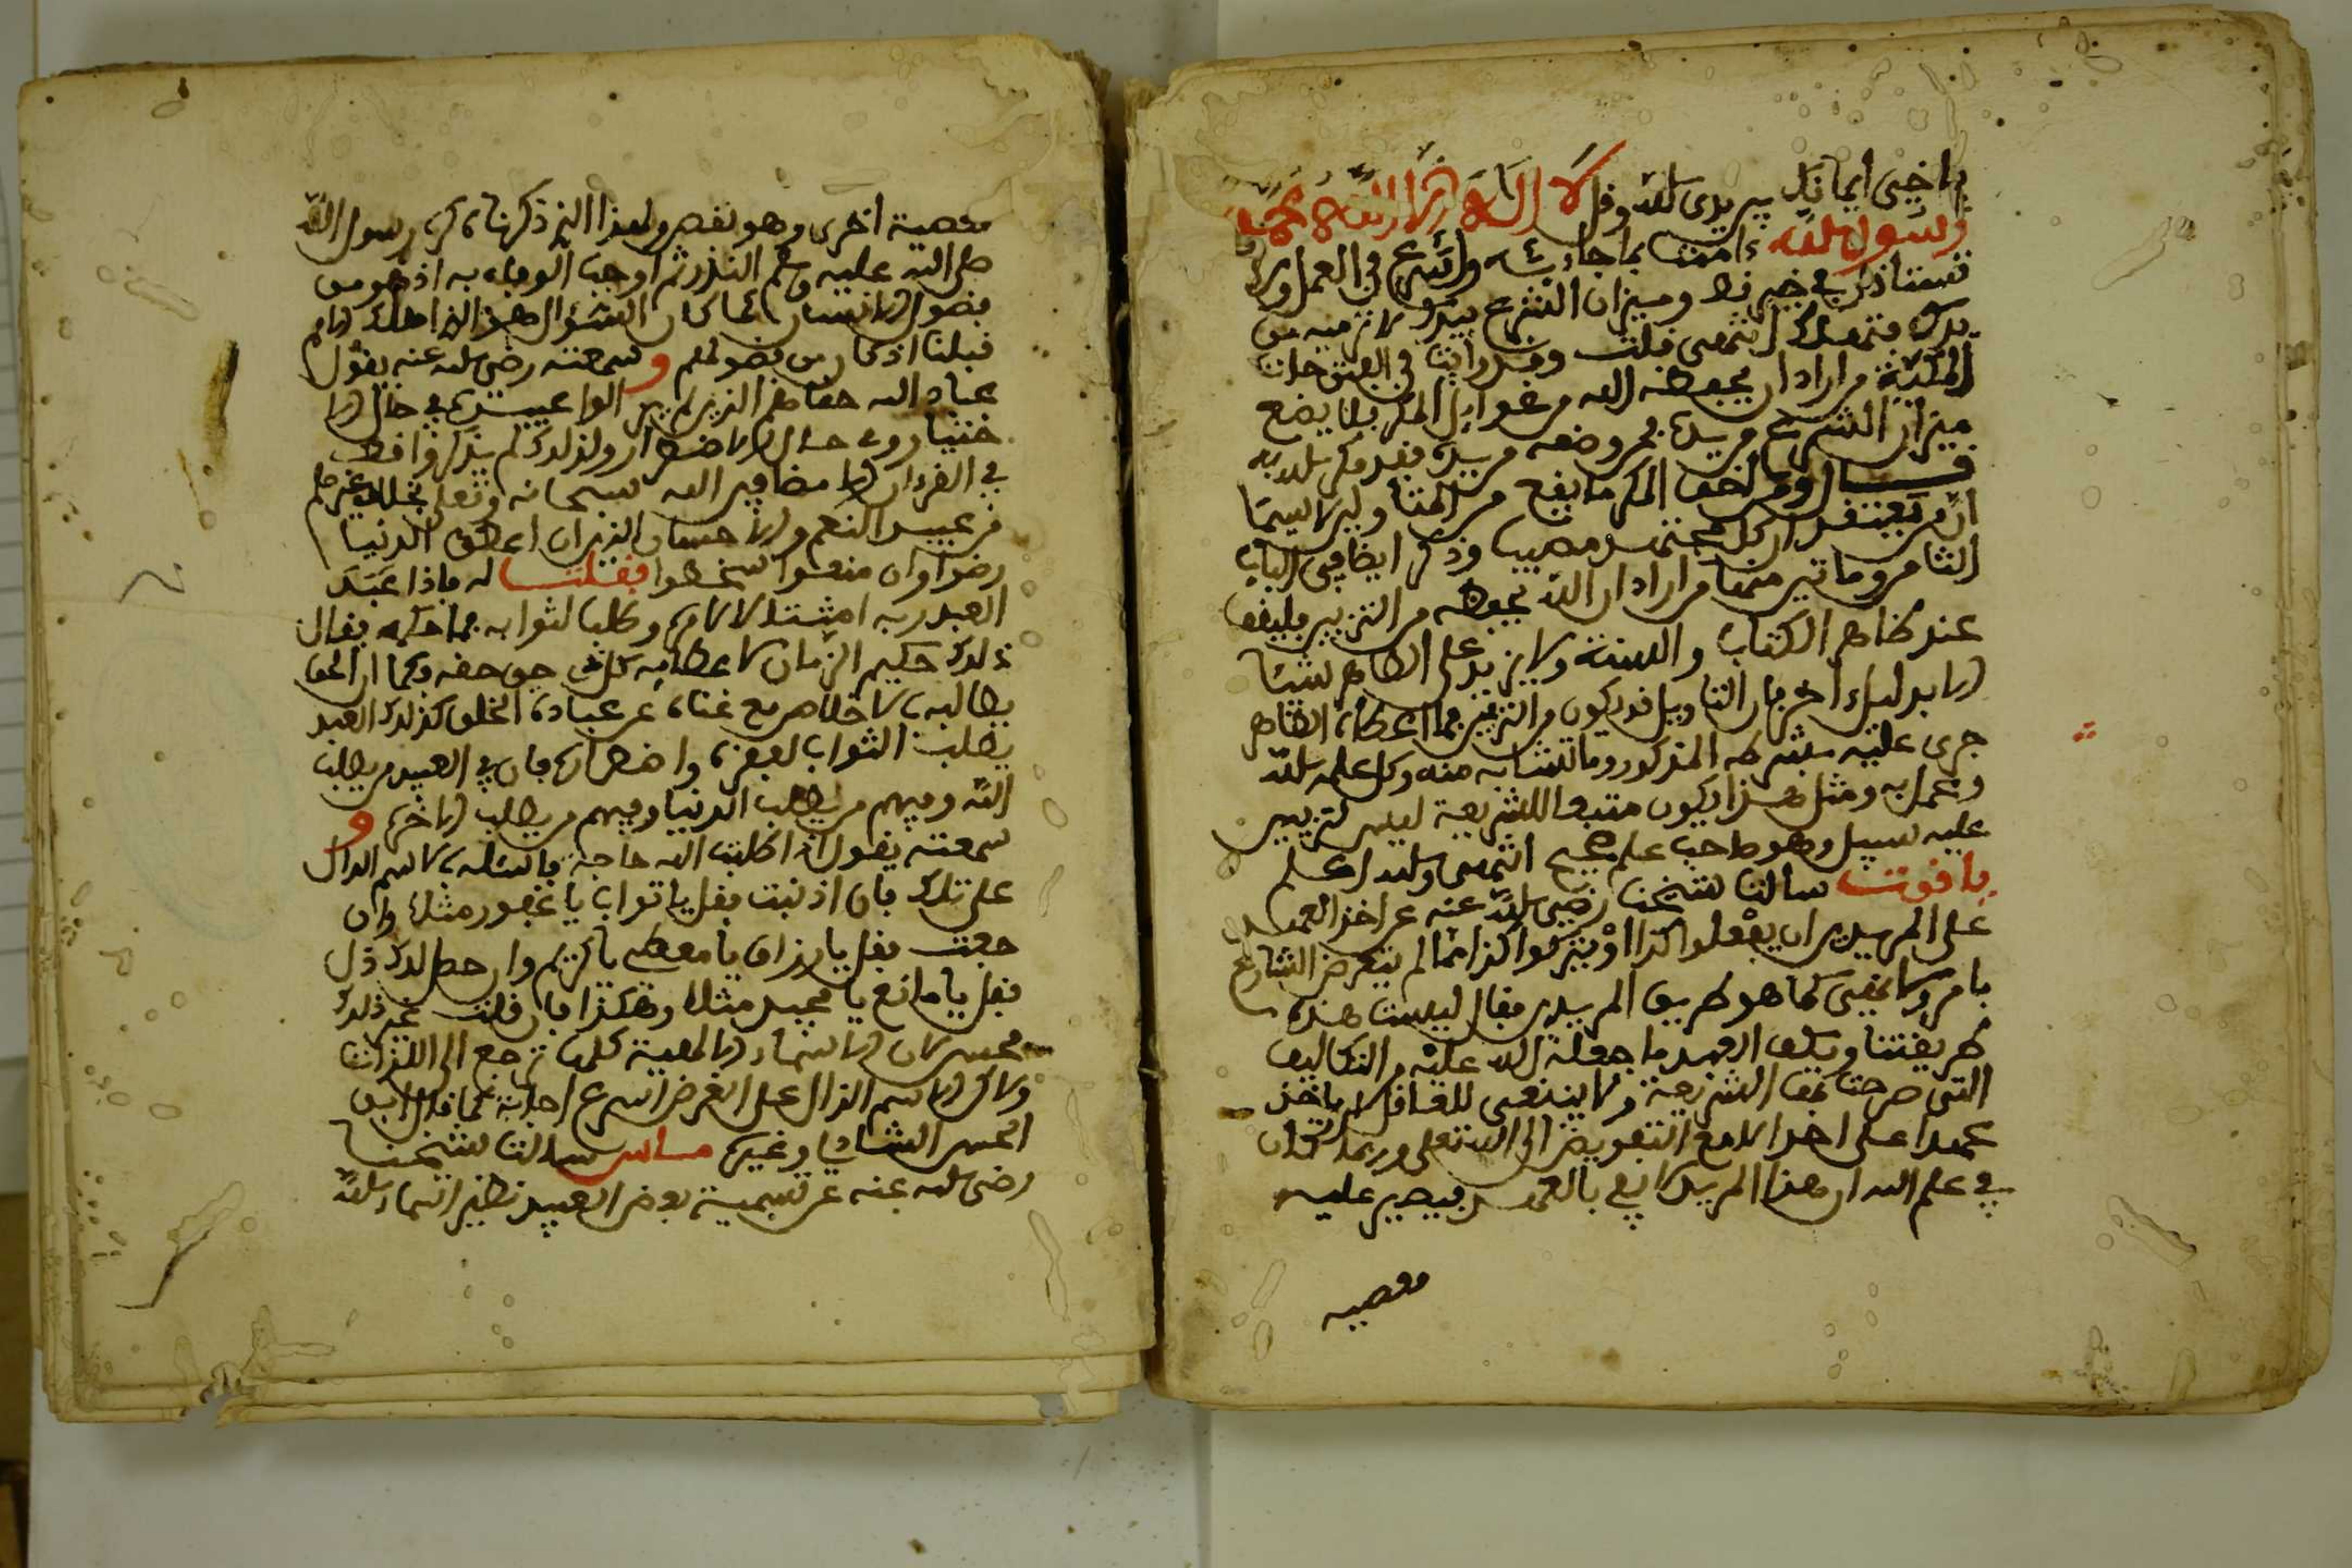 يا أخي إيمانك بين يدي الله وقل لا إله إلا الله محمد
رسول الله ءامنت بما جاء به وأسرع في العمل ولا
تستأذن في خير قط وميزان الشرع بيدك لا ترميه من
يدك فتهلك انتهى قلت وقد رأيت في الفتوحات
المكية من أراد أن يحفظه الله من غوايل المكر فلا يضع
ميزان الشرع من يده فمن وضعه من يده فقد مكر الله به
قال ومن أخفى المكر ما يقع من المتأولين لا سيما
إن من يعتقد أن كل مجتهد مصيب وذكر أيضا في الباب
الثامن وماتين منها من أراد أن الله يحفظه من التزيين فليقف
عند ظاهر الكتاب والسنة ولا يزيد على الظاهر شيئا
إلا بدليل ءاخر فإن التأويل قد يكون من التزيين فما أعطاه الظاهر
جرى عليه بشرطه المذكور وما تشابه منه وكل علمه لله
وعمل به ومثل هذا يكون متبعا للشريعة ليس لتزيين
عليه سبيل وهو صاحب علم صحيح انتهى والله أعلم
ياقوت سألت شيخنا رضي الله عنه عن أخذ العهد
على المريدين أن يفعلوا كذا أو يتركوا كذا مما لم يتعرض الشارع
بأمر ولا نهي كما هو طريق المريدين فقال ليست هذه
طريقتنا ويكفي العهد ما جعله الله عليه من التكاليف
التي صرحت بها الشريعة ولا ينبغي للعاقل أن ياخذ
عهدا على أحد إلا مع التفويض إلى الله تعلى وربما كان
في علم الله أن هذا المريد لا يفي بالعهد فيصير عليه
معصيه
معصية أخرى وهو نقص ولهذا الذي ذكرناه كره رسول الله
صلى الله عليه وسلم النذر ثم أوجب الوفاء به إذ هو من
فضول الإنسان كما كان السؤال هو الذي أهلك الأمم
قبلنا إذ كان من فضولهم وسمعته رضي الله عنه يقول
عباد الله حقا هم الذين لم يزالوا عبيده في حال الا
ختيار وفي حال الاضطرار ولذلك لم يذكروا قط
في القرءان إلا مضافين الله سبحانه وتعلى بخلاف غيرهم
من عبيد النعم والإحسان الذين إن أعطوا الدنيا
رضوا وإن منعوا سخطوا فقلت له فإذا عبد
العبد ربه امتثالا لأمره وطلبا لثوابه فما حكمه فقال
ذلك حكيم الزمان لإعطائه كل شيء حق حقه وكما أن الحق
يطالبه بالإخلاص مع غناه عن عباده الخلق كذلك العبد
يطلب الثواب لفقره واضطراره فإن في العبيد من يطلب
الله ومنهم من يطلب الدنيا ومنهم من يطلب الآخرة و
سمعته يقول إذا طلبت الله حاجة فاسئله بالاسم الدال
على تلك فإن أذنبت فقل يا تواب يا غفور مثلا وإن
جعت فقل يا رزاق يا معطي يا كريم وإن حصل لك ذل
فقل يا مانع يا مجيد مثلا وهكذا فإن قلت غير ذلك
فحسن لأن الأسماء الإلهية كلها ترجع إلى الذات
ولكن الاسم الدال على الغرض أسرع إجابة كما قال أبو
الحسن الشاذلي وغيره ماس سألت شيخنا
رضي الله عنه عن تسمية بعض العبيد نظير أسماء الله